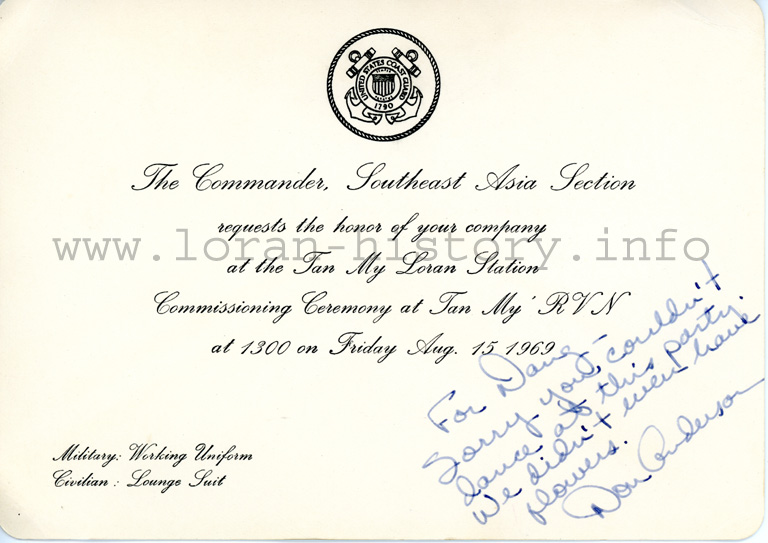 UNITED STATES COAST GUARD
1790
The Commander, Southeast Asia Section
requests the honor of your company
www.loran-history.info
at the Tan My Loran Station
Commissioning Ceremony at Tan My' RVN
at 1300 on Friday Aug. 15 1969
Military: Working Uniform
Civilian : Lounge Suit
For Dang -
Sorry you couldn't
dance at this party.
We didn't even have
flowers.
Don Anderson